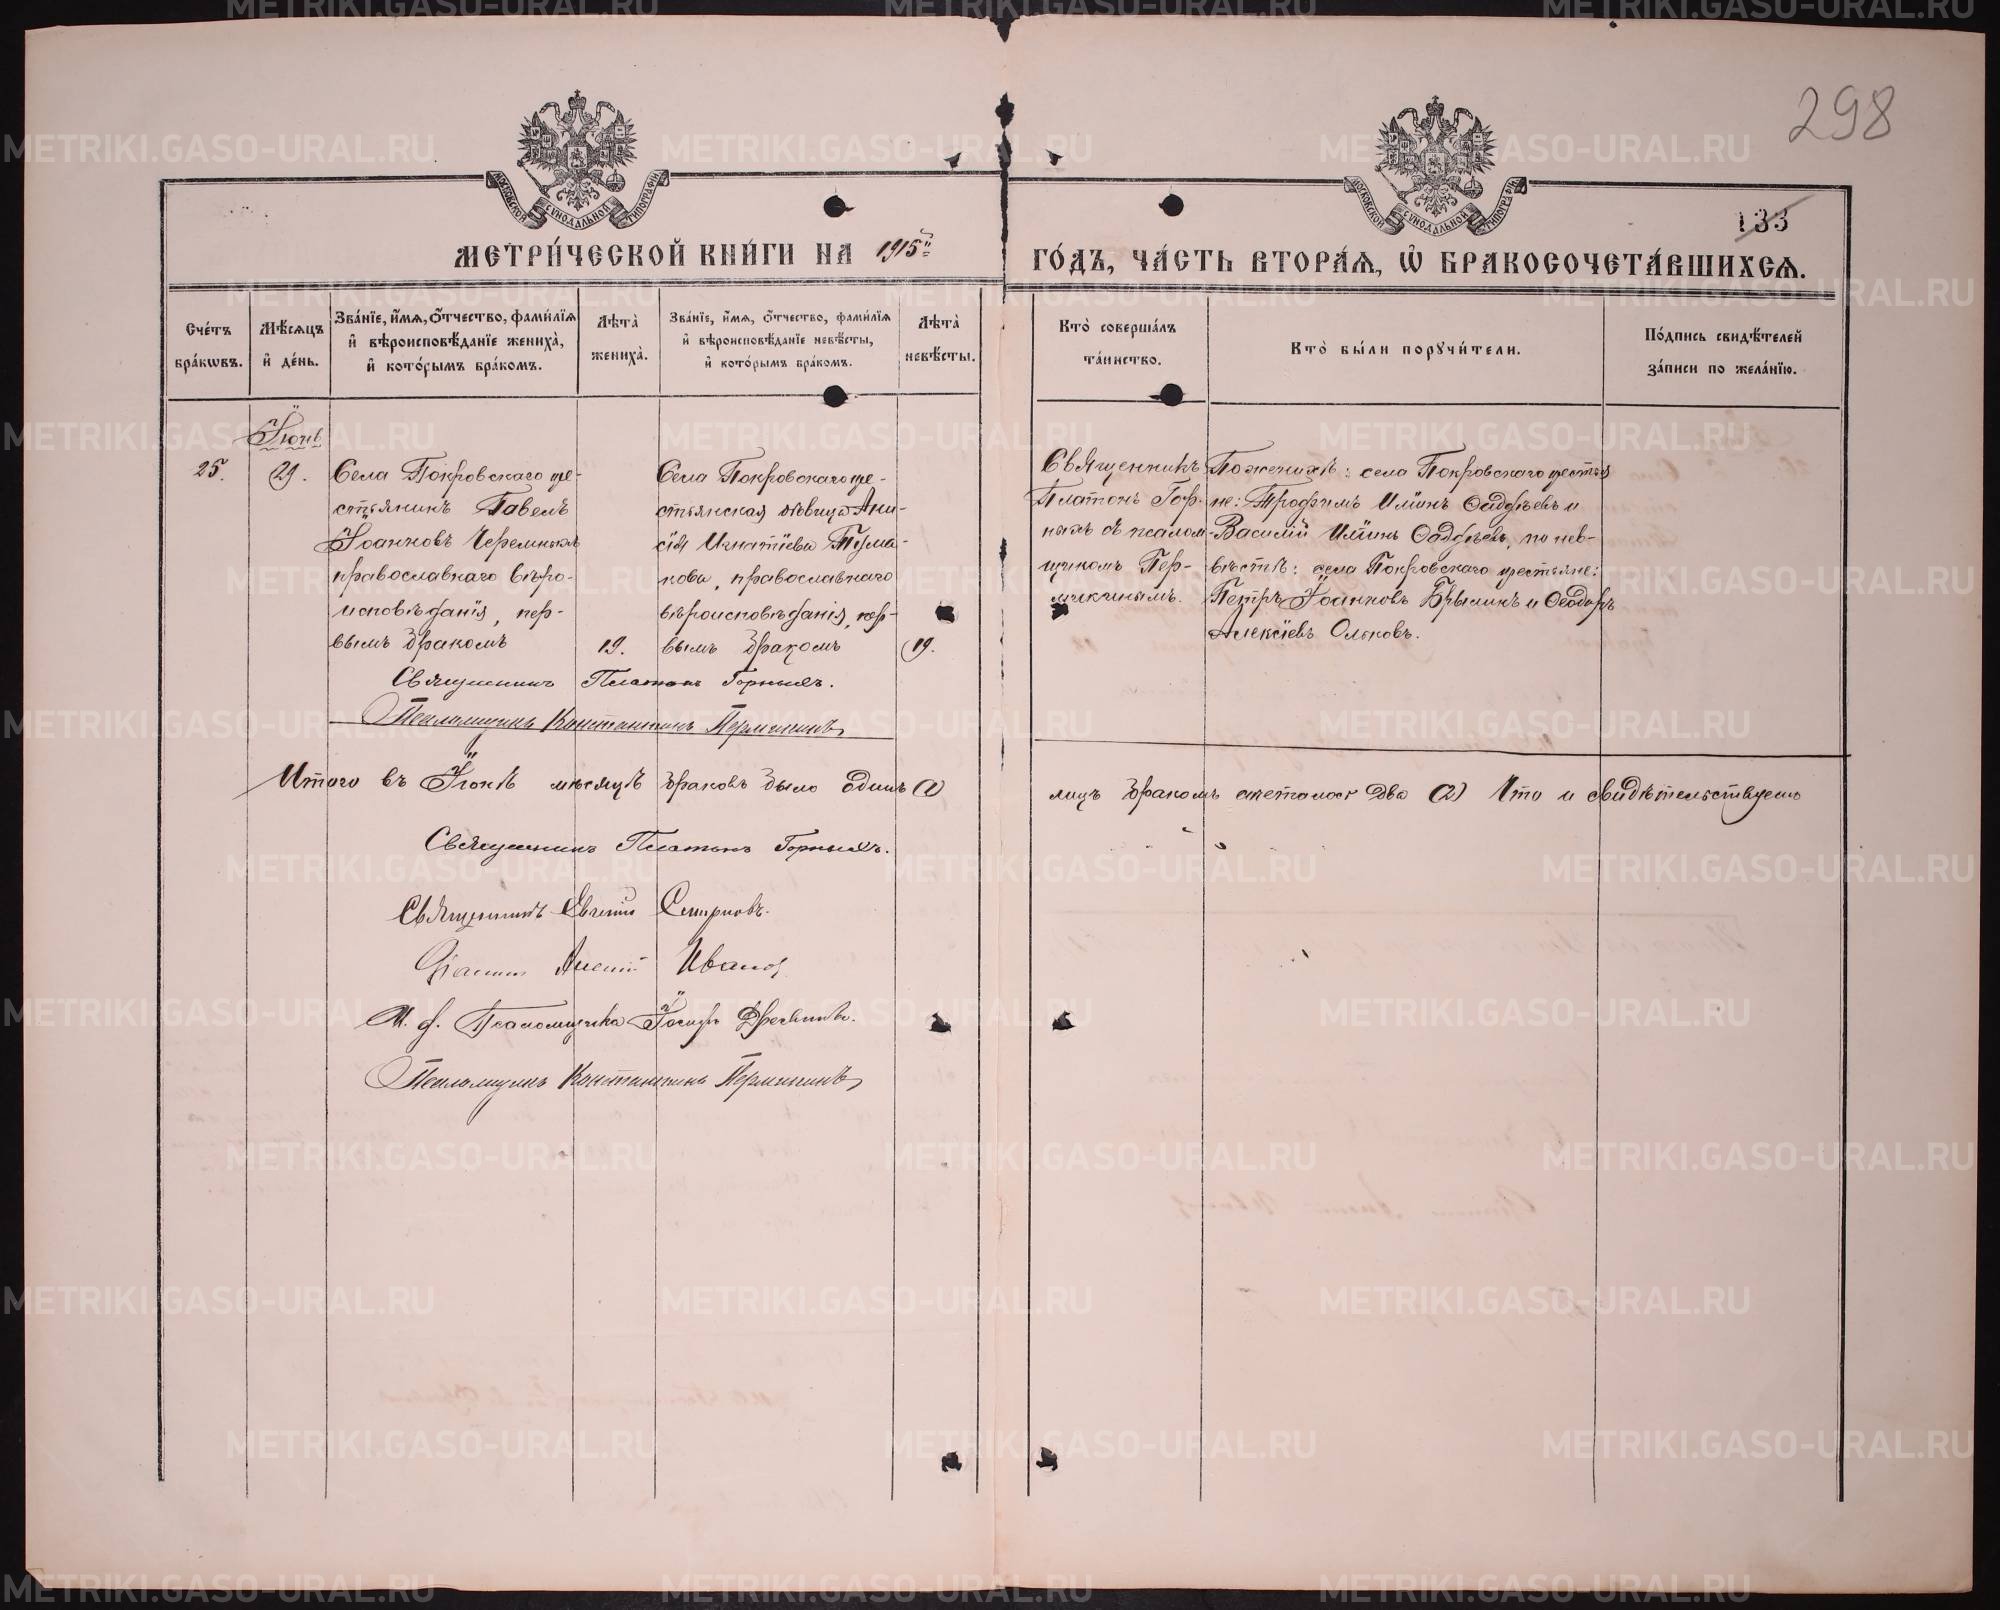 298
133
МОСКОВСКОЙ СѴНОДАЛЬНОЙ ТИПОГРАФІИ
МОСКОВСКОЙ СѴНОДАЛЬНОЙ ТИПОГРАФІИ
МЕТРИ́ЧЕСКОЙ КНИ́ГИ НА 1915й
ГО́ДЪ, ЧА́СТЬ ВТОРА́Я, Ѡ БРАКОСОЧЕТА́ВШИХСЯ.
Сче́тъ бра́кѡвъ.
Мѣ́сяцъ и҆ де́нь.
Зва́нїе, и҆́мя, ѻ҆́тчество, фами́лїя и҆ вѣроисповѣ́данїе жениха̀, и҆ кото́рымъ бра́комъ.
Лѣ́та жениха̀.
Зва́нїе, и҆́мя, ѻ҆́тчество, фами́лїя и҆ вѣроисповѣ́данїе невѣ́сты, и҆ кото́рымъ бра́комъ.
Лѣ́та невѣ́сты.
Кто̀ соверша́лъ та́инство.
Кто̀ бы́ли порꙋчи́тели.
По́дпись свидѣ́телей за́писи по жела́нїю.
Іюнь
25.
29.
Села Покровскаго кре-
стьянинъ Павелъ
Іоанновъ Черемныхъ
православнаго вѣро-
исповѣданія, пер-
вымъ бракомъ
19.
Села Покровскаго кре-
стьянская дѣвица Ани-
сія Игнатіева Тума-
нова, православнаго
вѣроисповѣданія, пер-
вымъ бракомъ
19.
Священникъ
Платонъ Гор-
ныхъ съ псалом-
щикомъ Пер-
микинымъ.
По женихѣ: села Покровскаго крестья
не: Трофимъ Иліинъ Авдѣевъ и
Василій Иліинъ Авдѣевъ, по нев-
ѣстѣ: села Покровскаго крестьяне:
Петръ Іоанновъ Брылинъ и Ѳеодоръ
Алексіевъ Ольковъ.
Священникъ Платонъ Горныхъ.
Псаломщикъ Константинъ Пермикинъ
Итого въ Іюнѣ мѣсяцѣ браковъ было одинъ (1)
лицъ бракомъ сочеталось два (2) Что и свидѣтельствуемъ
Священникъ Платонъ Горныхъ.
Священникъ Евгеній Смирновъ.
Діаконъ Иванов
И. д. Псаломщика Іосифъ
Псаломщикъ Константинъ Пермикинъ
METRIKI.GASO-URAL.RU